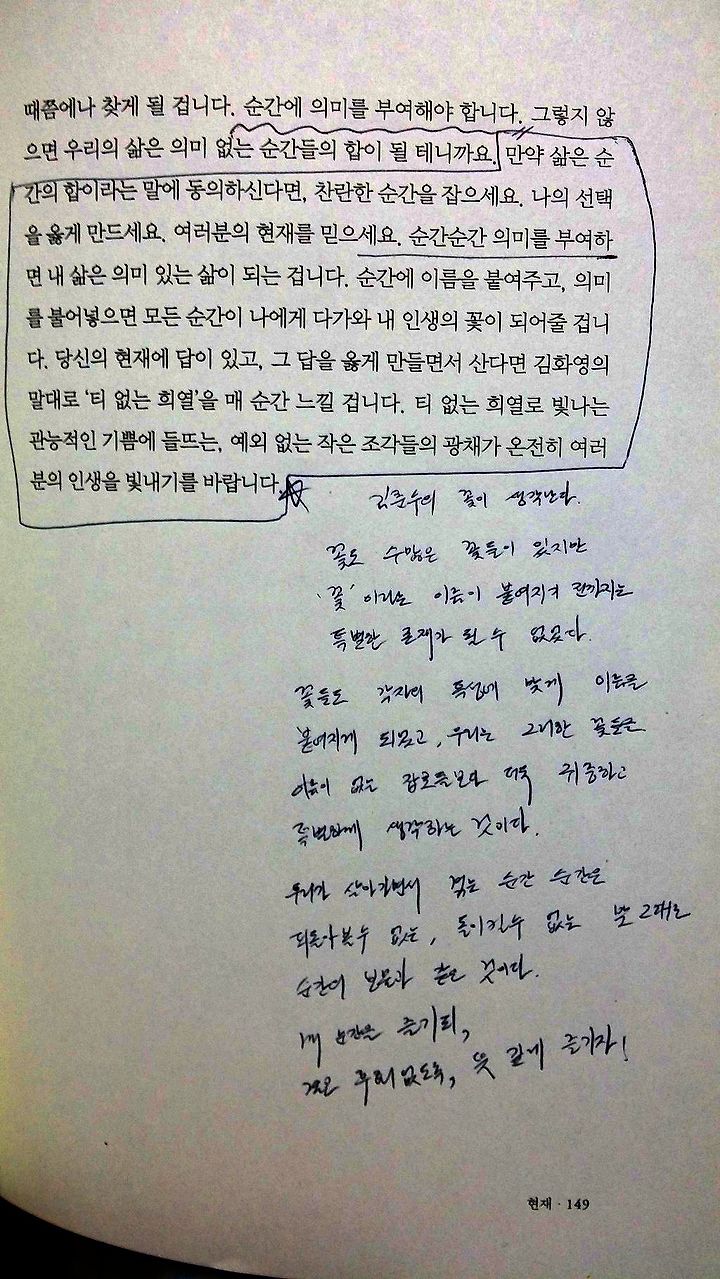 때쯤에나 찾게 될 겁니다. 순간에 의미를 부여해야 합니다. 그렇지 않
으면 우리의 삶은 의미 없는 순간들의 합이 될 테니까요. 만약 삶은 순
간의 합이라는 말에 동의하신다면, 찬란한 순간을 잡으세요. 나의 선택
을 옳게 만드세요. 여러분의 현재를 믿으세요. 순간순간 의미를 부여하
면 내 삶은 의미 있는 삶이 되는 겁니다. 순간에 이름을 붙여주고, 의미
를 불어넣으면 모든 순간이 나에게 다가와 내 인생의 꽃이 되어줄 겁니
다. 당신의 현재에 답이 있고, 그 답을 옳게 만들면서 산다면 김화영의
말대로 '티 없는 희열'을 매 순간 느낄 겁니다. 티 없는 희열로 빛나는
관능적인 기쁨에 들뜨는, 예외 없는 작은 조각들의 광채가 온전히 여러
분의 인생을 빛내기를 바랍니다.
김춘수의 꽃이 생각난다.
꽃도 수많은 꽃들이 있지만
'꽃' 이라는 이름이 붙여지기 전까지는
특별한 존재가 될 수 없었다.
꽃들도 각자의 특성에 맞게 이름을
붙여지게 되었고, 우리는 그러한 꽃들을
이름이 없는 잡초들보다 더욱 귀중하고
특별하게 생각하는 것이다.
우리가 살아가면서 겪는 순간 순간은
되돌아볼수 없는, 돌이킬수 없는 말 그대로
순간의 보물과 같은 것이다.
매 순간을 즐기되,
후회없도록, 뜻 깊게 즐기자!
현재 · 149